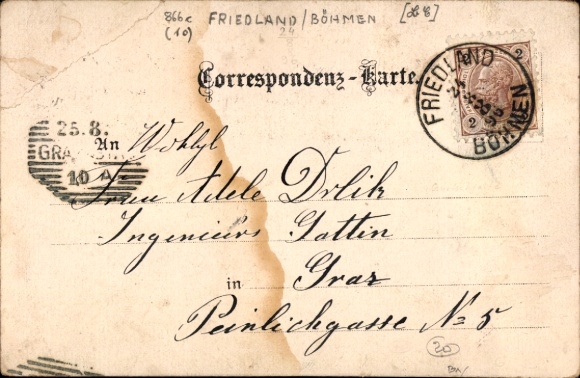 866c FRIEDLAND/BÖHMEN
(10) 24
Correspondenz-Karte.
2 2
FRIEDLAND
BÖHMEN
2
25.8.
10 A
An Wohlg
Frau Adele Drlik
Ingenieurs Gattin
in Graz
Peinlichgasse No 5
20